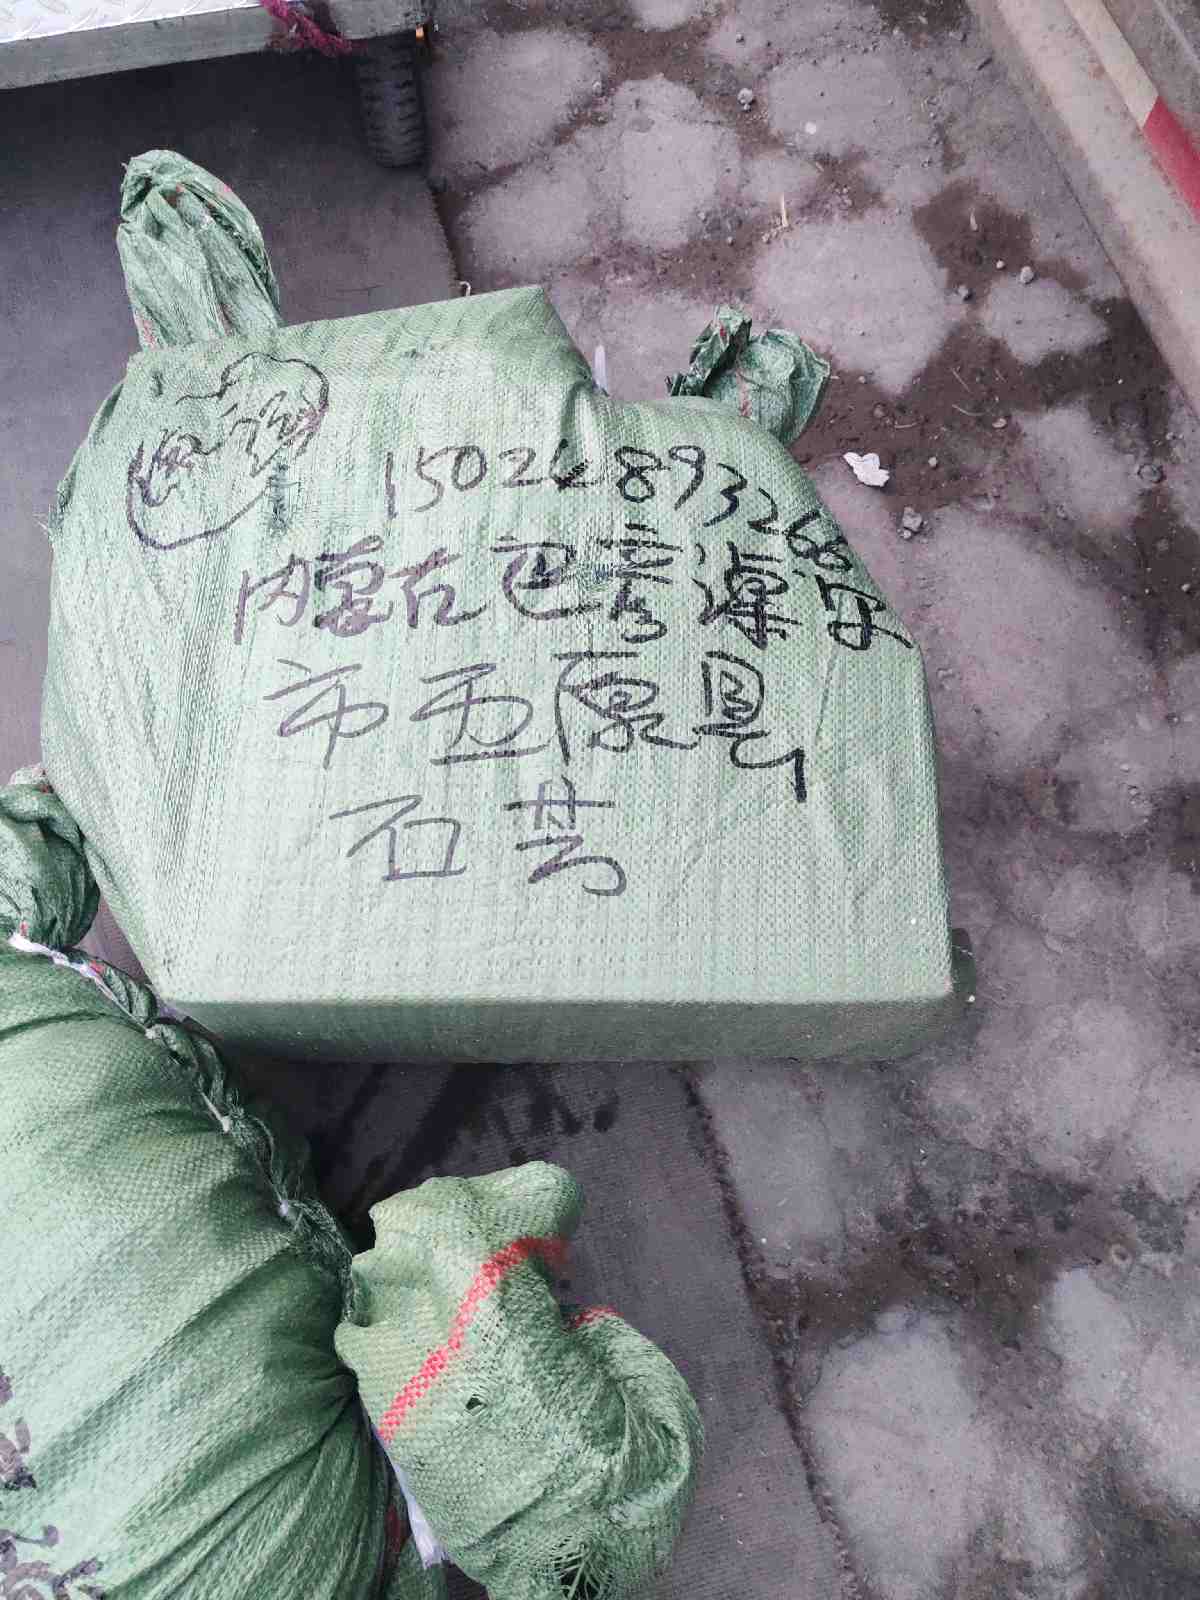 15022893266
内蒙古巴彦淖尔
市五原县
石芸